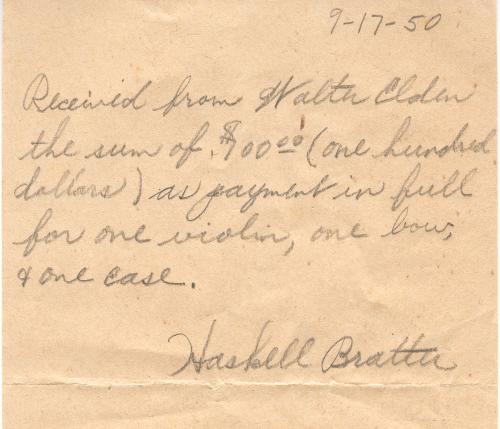 9-17-50
Received from Walter Elden
the sum of $100.00 (one hundred
dollars) as payment in full
for one violin, one bow,
& one case.
Haskell Bratter